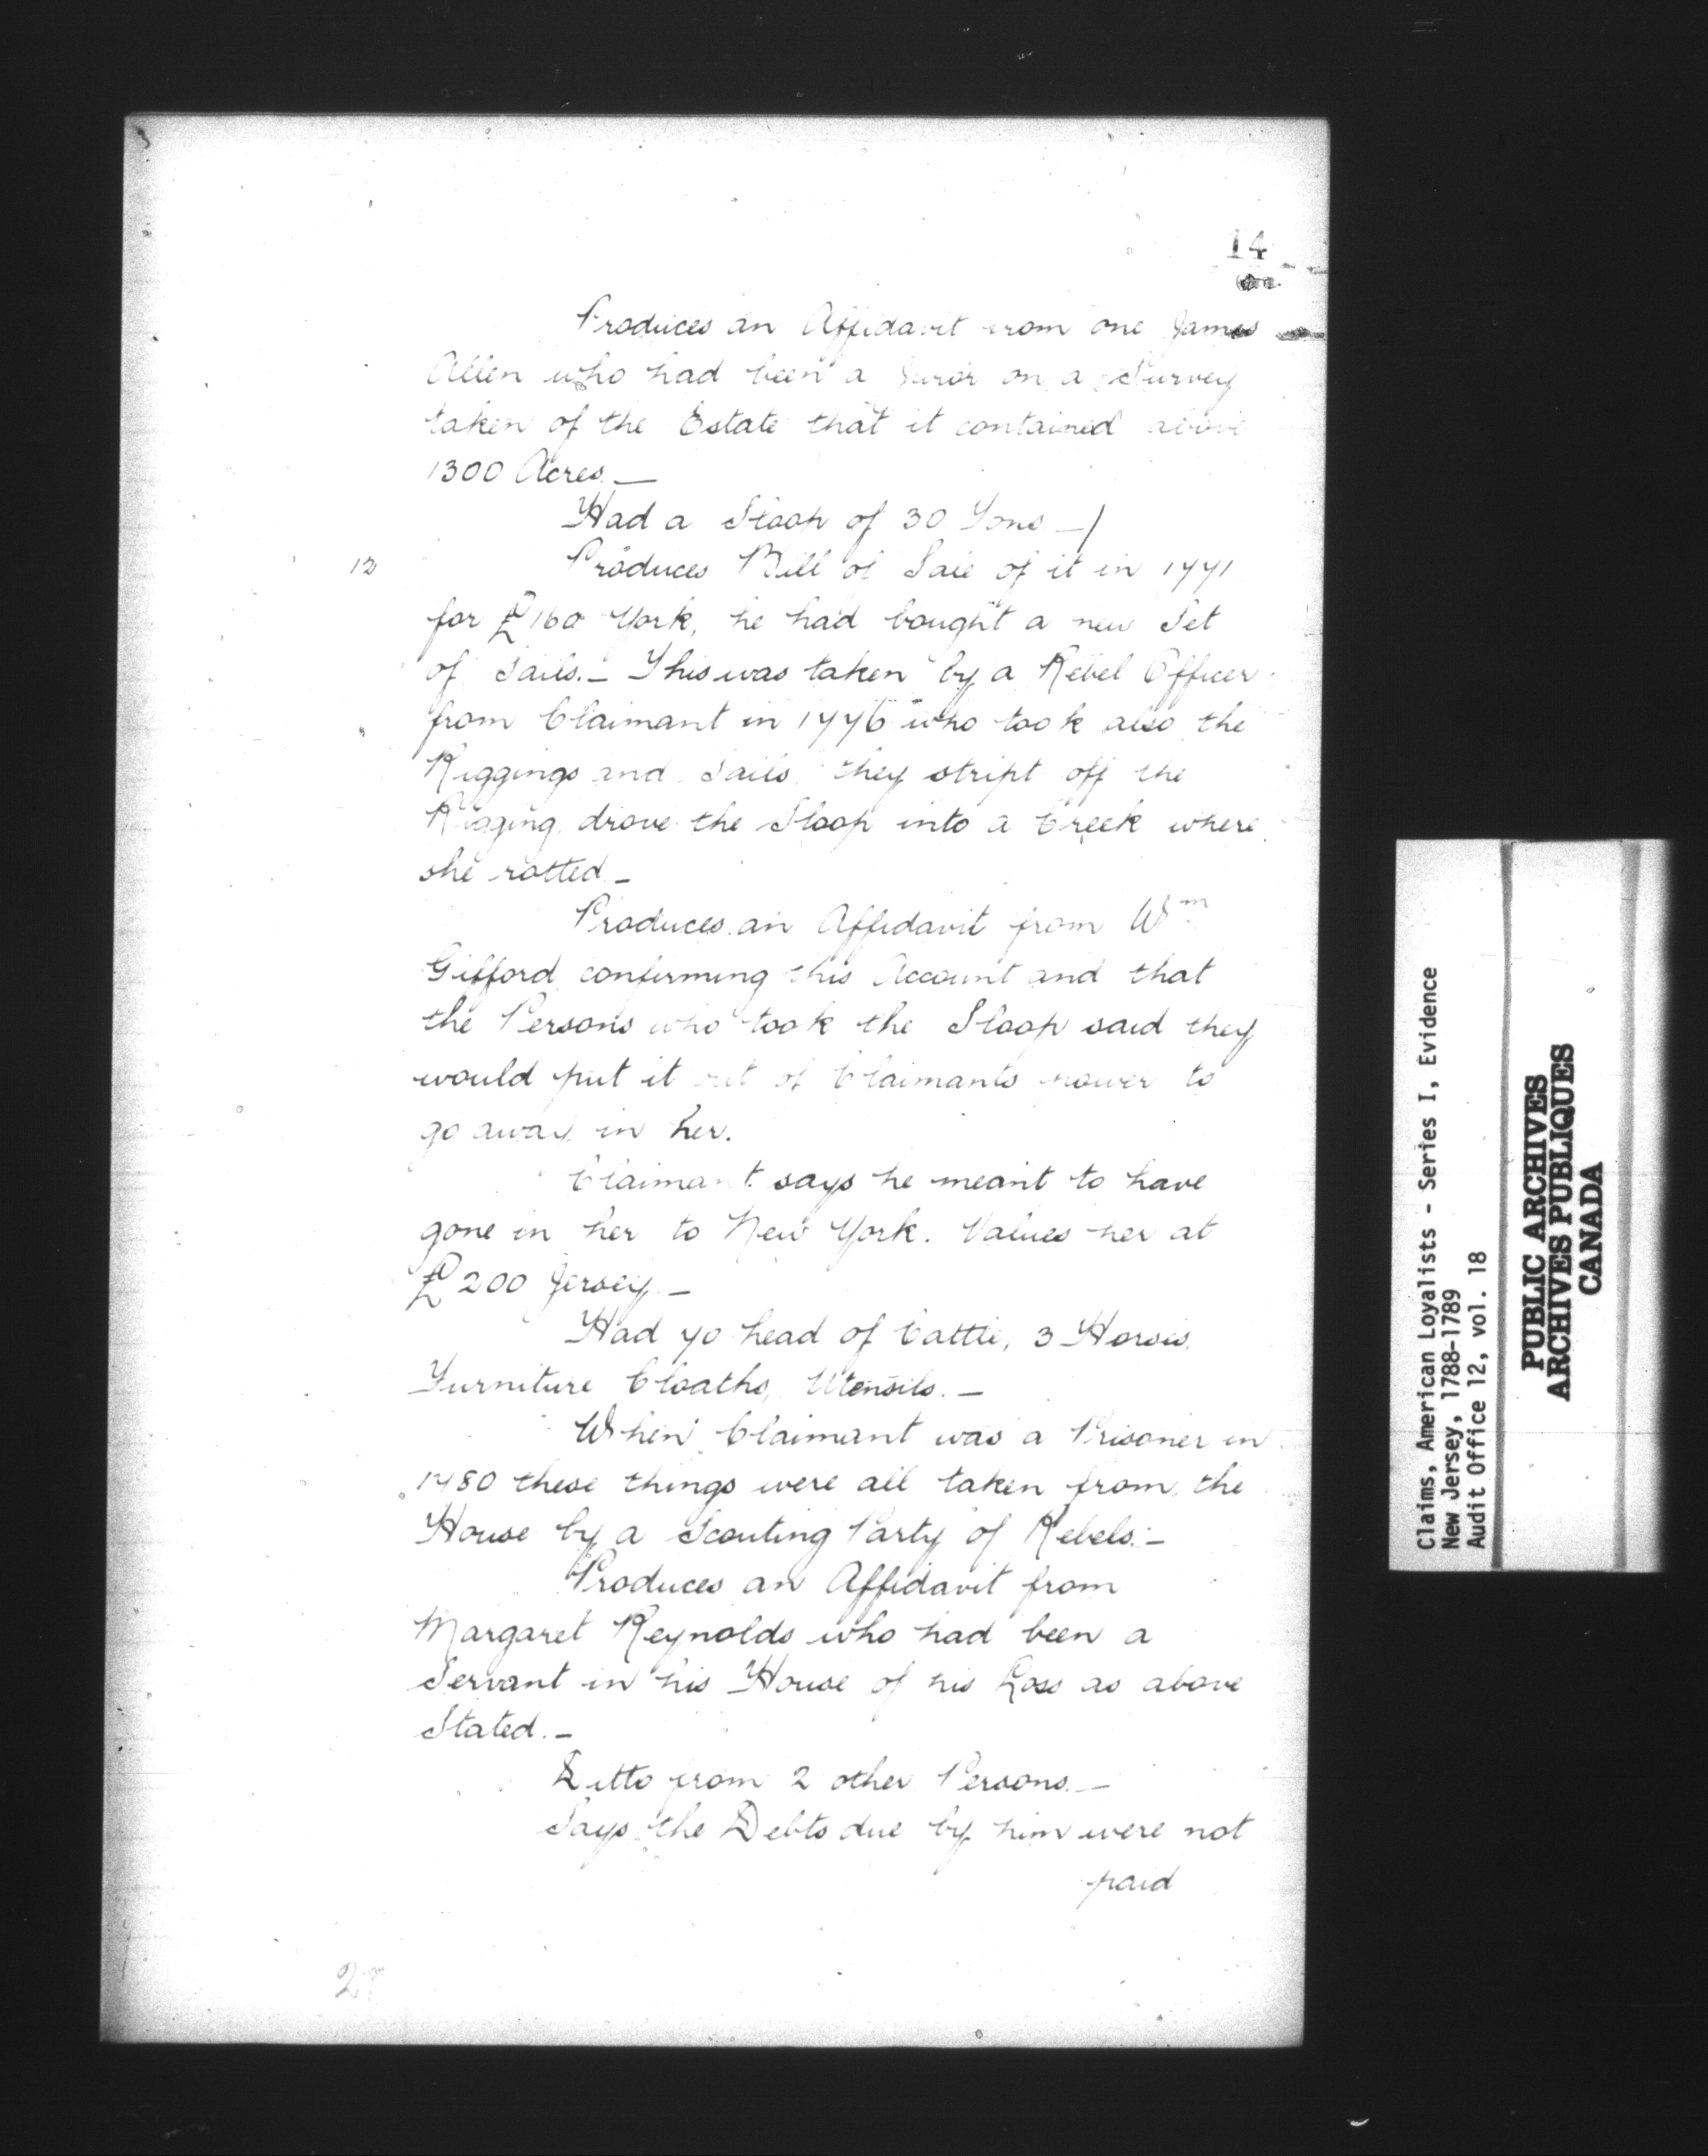 14
Produces an Affidavit from one James
Allen who had been a Juror on a Survey
taken of the Estate that it contained above
1300 Acres. —
Had a Sloop of 30 Tons —/
12
Produces Bill of Sale of it in 1771
for £160 York, he had bought a new Set
of Sails. — This was taken by a Rebel Officer
from Claimant in 1776 who took also the
Riggings and Sails they stript off the
Rigging drove the Sloop into a Creek where
she rotted —
Produces an Affidavit from Wm
Gifford confirming this Account and that
the Persons who took the Sloop said they
would put it out of Claimants power to
go away in her.
Claimant says he meant to have
gone in her to New York. Values her at
£200 Jersey. —
Had 70 head of Cattle, 3 Horses,
Furniture Cloaths, Utensils. —
When Claimant was a Prisoner in
1780 these things were all taken from the
House by a Scouting Party of Rebels. —
Produces an Affidavit from
Margaret Reynolds who had been a
Servant in his House of his Loss as above
Stated. —
Ditto from 2 other Persons. —
Says the Debts due by him were not
paid
Claims, American Loyalists - Series I, Evidence
New Jersey, 1788-1789
Audit Office 12, vol. 18
PUBLIC ARCHIVES
ARCHIVES PUBLIQUES
CANADA